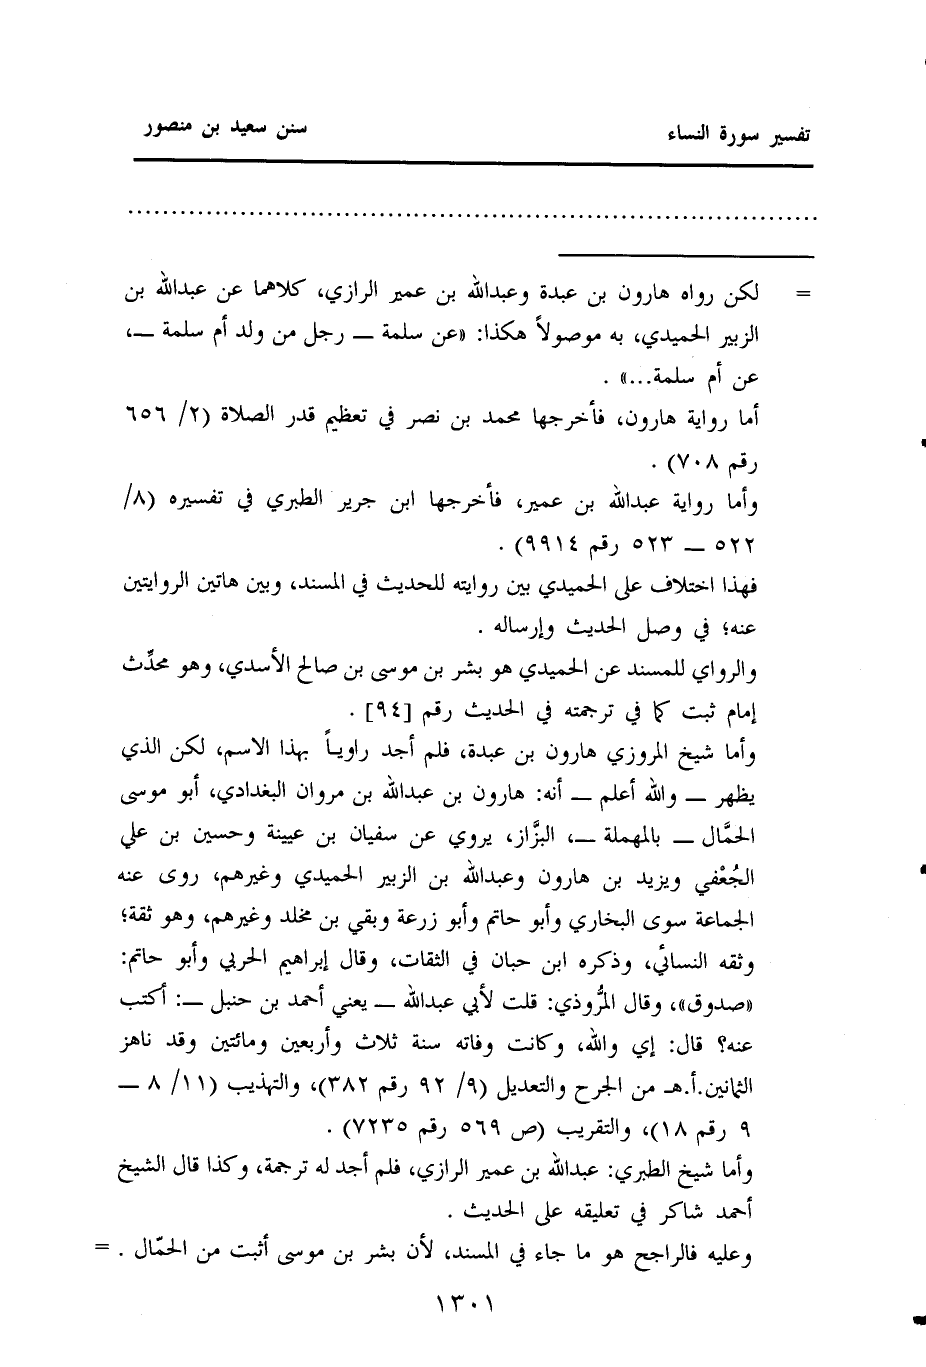 تفسير سورة النساء سنن سعيد بن منصور
= لكن رواه هارون بن عبدة وعبدالله بن عمير الرازي، كلاهما عن عبدالله بن
الزبير الحميدي، به موصولاً هكذا: «عن سلمة ــ رجل من ولد أم سلمة ــ،
عن أم سلمة...» .
أما رواية هارون، فأخرجها محمد بن نصر في تعظيم قدر الصلاة (٢/ ٦٥٦
رقم ٧٠٨) .
وأما رواية عبدالله بن عمير، فأخرجها ابن جرير الطبري في تفسيره (٨/
٥٢٢ ــ ٥٢٣ رقم ٩٩١٤) .
فهذا اختلاف على الحميدي بين روايته للحديث في المسند، وبين هاتين الروايتين
عنه؛ في وصل الحديث وإرساله .
والرواي للمسند عن الحميدي هو بشر بن موسى بن صالح الأسدي، وهو محدِّث
إمام ثبت كما في ترجمته في الحديث رقم [٩٤] .
وأما شيخ المروزي هارون بن عبدة، فلم أجد راوياً بهذا الاسم، لكن الذي
يظهر ــ والله أعلم ــ أنه: هارون بن عبدالله بن مروان البغدادي، أبو موسى
الحمَّال ــ بالمهملة ــ، البزَّاز، يروي عن سفيان بن عيينة وحسين بن علي
الجُعْفي ويزيد بن هارون وعبدالله بن الزبير الحميدي وغيرهم، روى عنه
الجماعة سوى البخاري وأبو حاتم وأبو زرعة وبقي بن مخلد وغيرهم، وهو ثقة؛
وثقه النسائي، وذكره ابن حبان في الثقات، وقال إبراهيم الحربي وأبو حاتم:
«صدوق»، وقال المرُّوذي: قلت لأبي عبدالله ــ يعني أحمد بن حنبل ــ: أكتب
عنه؟ قال: إي والله، وكانت وفاته سنة ثلاث وأربعين ومائتين وقد ناهز
الثمانين.أ.هـ من الجرح والتعديل (٩/ ٩٢ رقم ٣٨٢)، والتهذيب (١١/ ٨ ــ
٩ رقم ١٨)، والتقريب (ص ٥٦٩ رقم ٧٢٣٥) .
وأما شيخ الطبري: عبدالله بن عمير الرازي، فلم أجد له ترجمة، وكذا قال الشيخ
أحمد شاكر في تعليقه على الحديث .
وعليه فالراجح هو ما جاء في المسند، لأن بشر بن موسى أثبت من الحمّال . =
١٣٠١